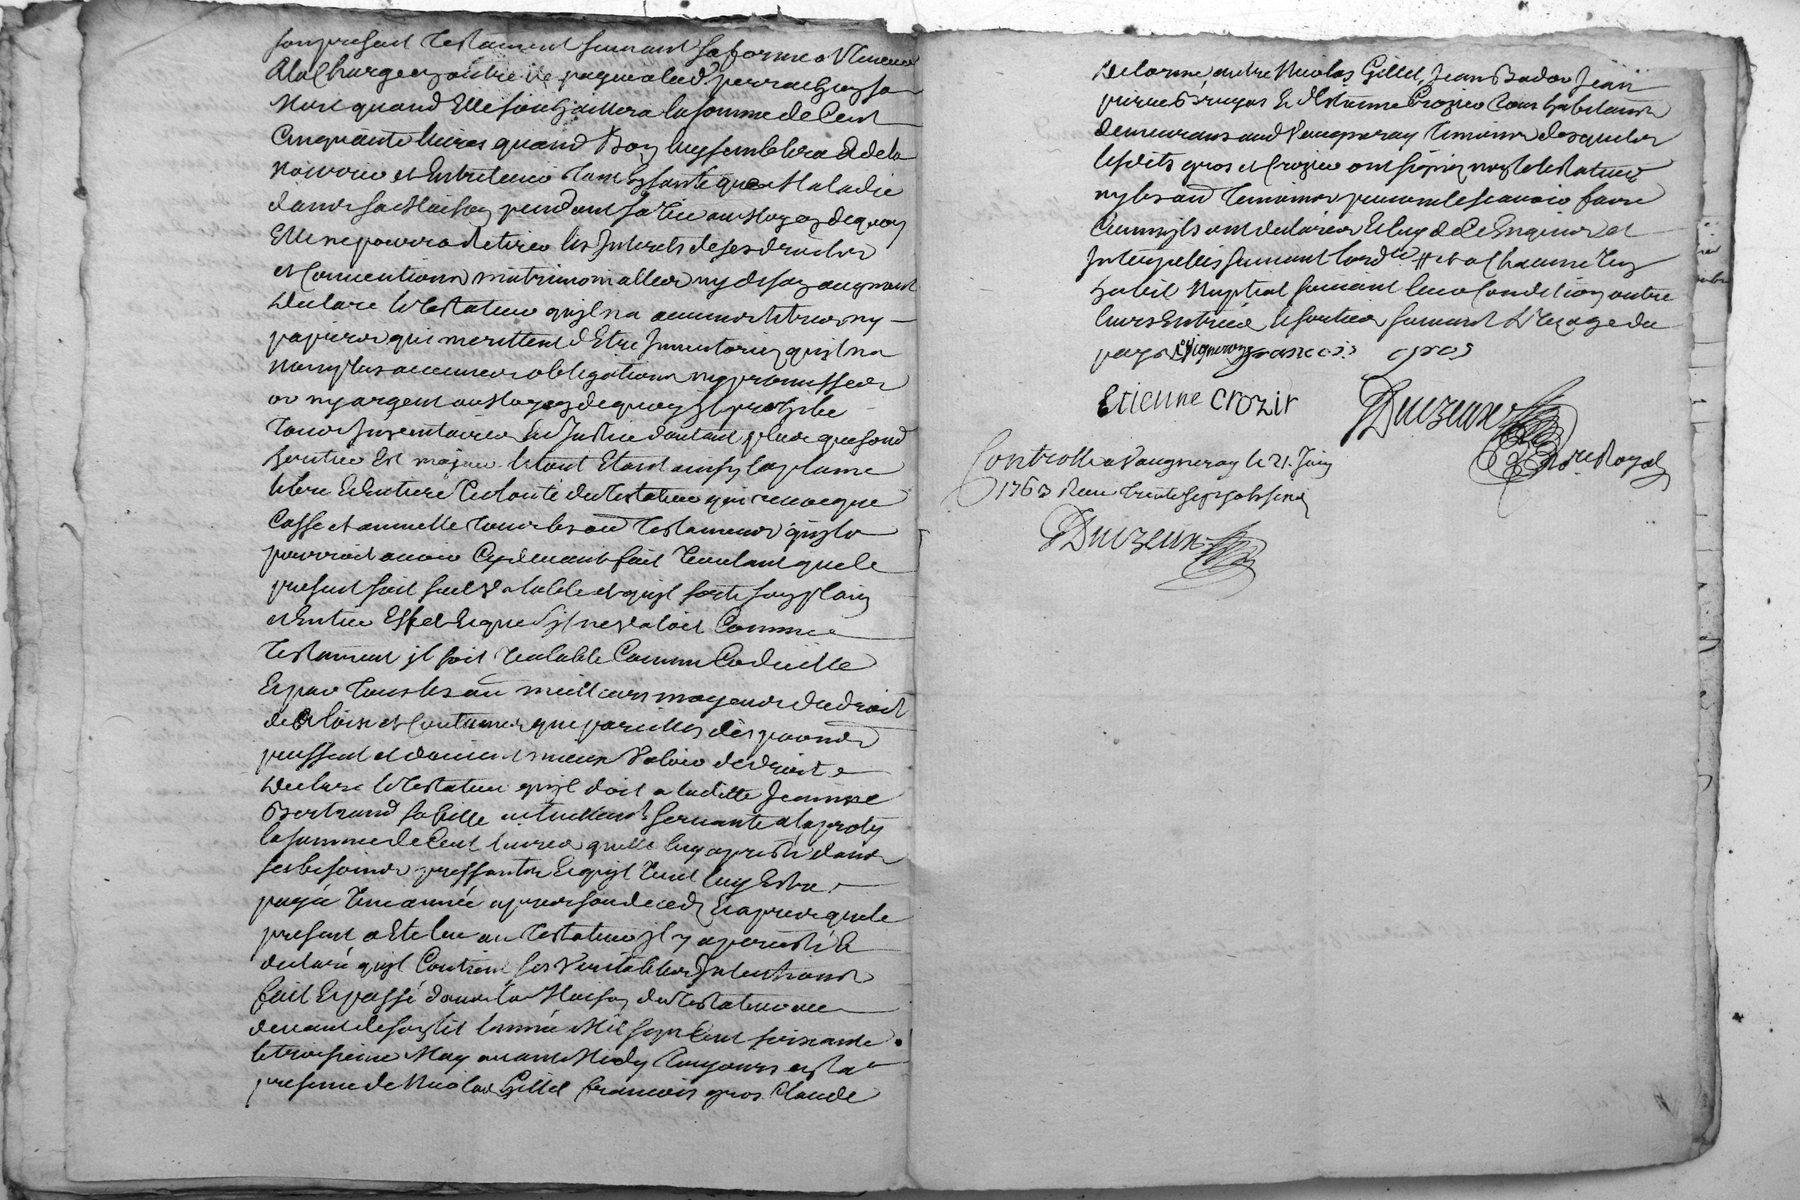 son present Testament suivant sa forme & Teneur
A la Charge en outre de payer a lad. perrachon sa
Mere quand Elle souhaittera la somme de Cent
Cinquante livres quand Bon luy semblera Et de la
nourrir et Entretenir Tant En santé que Maladie
dans sa Maison pendant sa vie au Moyen de quoy
Elle ne pourra Retirer les Interets de ses droits
et Conventions matrimonialles ny de son augment
Declare le Testateur qu'il n'a aucuns titres ny
papiers qui merittent d'Etre Inventoriez qu'il n'a
non plus aucunes obligations ny promesses
or ny argent au Moyen de quoy Il prohibe
Tous Inventaires En Justice d'autant plus que sond.
heritier Est majeur le tout Etant ainsy la pleine
libre & Entiere Volonté du Testateur qui revoque
Casse et annulle tous les au. Testaments qu'il
pourroit avoir Cydevant fait Voulant que le
present soit seul Valable et qu'il sorte son plain
et Entier Effet Et que s'il ne valoit Comme
Testament il soit Valable Comme Codicille
Et par Tous les au. meilleurs moyens du droit
de loix et Coutumes que pareilles
puissent et doivent mieux Valoir de droit
Declare le Testateur qu'il doit a laditte Jeanne
Bertrand sa fille actuellement servante
la somme de Cent livres qu'elle luy a presté dans
ses besoins pressants Et qu'il Veut luy Estre
payée Une année apres son deced. Et apres que le
present a Eté lu au Testateur il y a persisté &
declaré qu'il Contient ses Veritables Intentions
fait Et passé dans la Maison du Testateur au
devant de son lit l'année Mil sept Cent soixante
le troisieme May avant Midy Toujours
presence de Nicolas Gillet francois gros Claude
Delorme autre Nicolas Gillet, Jean Jean
pierre & d'Etienne Crozier tous habitants
demeurants aud. Vaugneray Temoins desquels
lesdits gros et Crozier ont signé non le Testateur
ny les au. Temoins pour ne le scavoir faire
Comme ils ont declaré Et luy de Ce Enquis et
Interpellés suivant l'ord.ce # et a Chacune Un
habit Nuptial suivant leur Condition outre
leurs Entrée & sortie suivant L'Usage du
pays Vigneron francois gros
Etienne Crozir
Duizeux
No.re Royal
Controllé a Vaugneray le 21. Juin
1763 Reçu Trente sept sols six d.
Duizeux